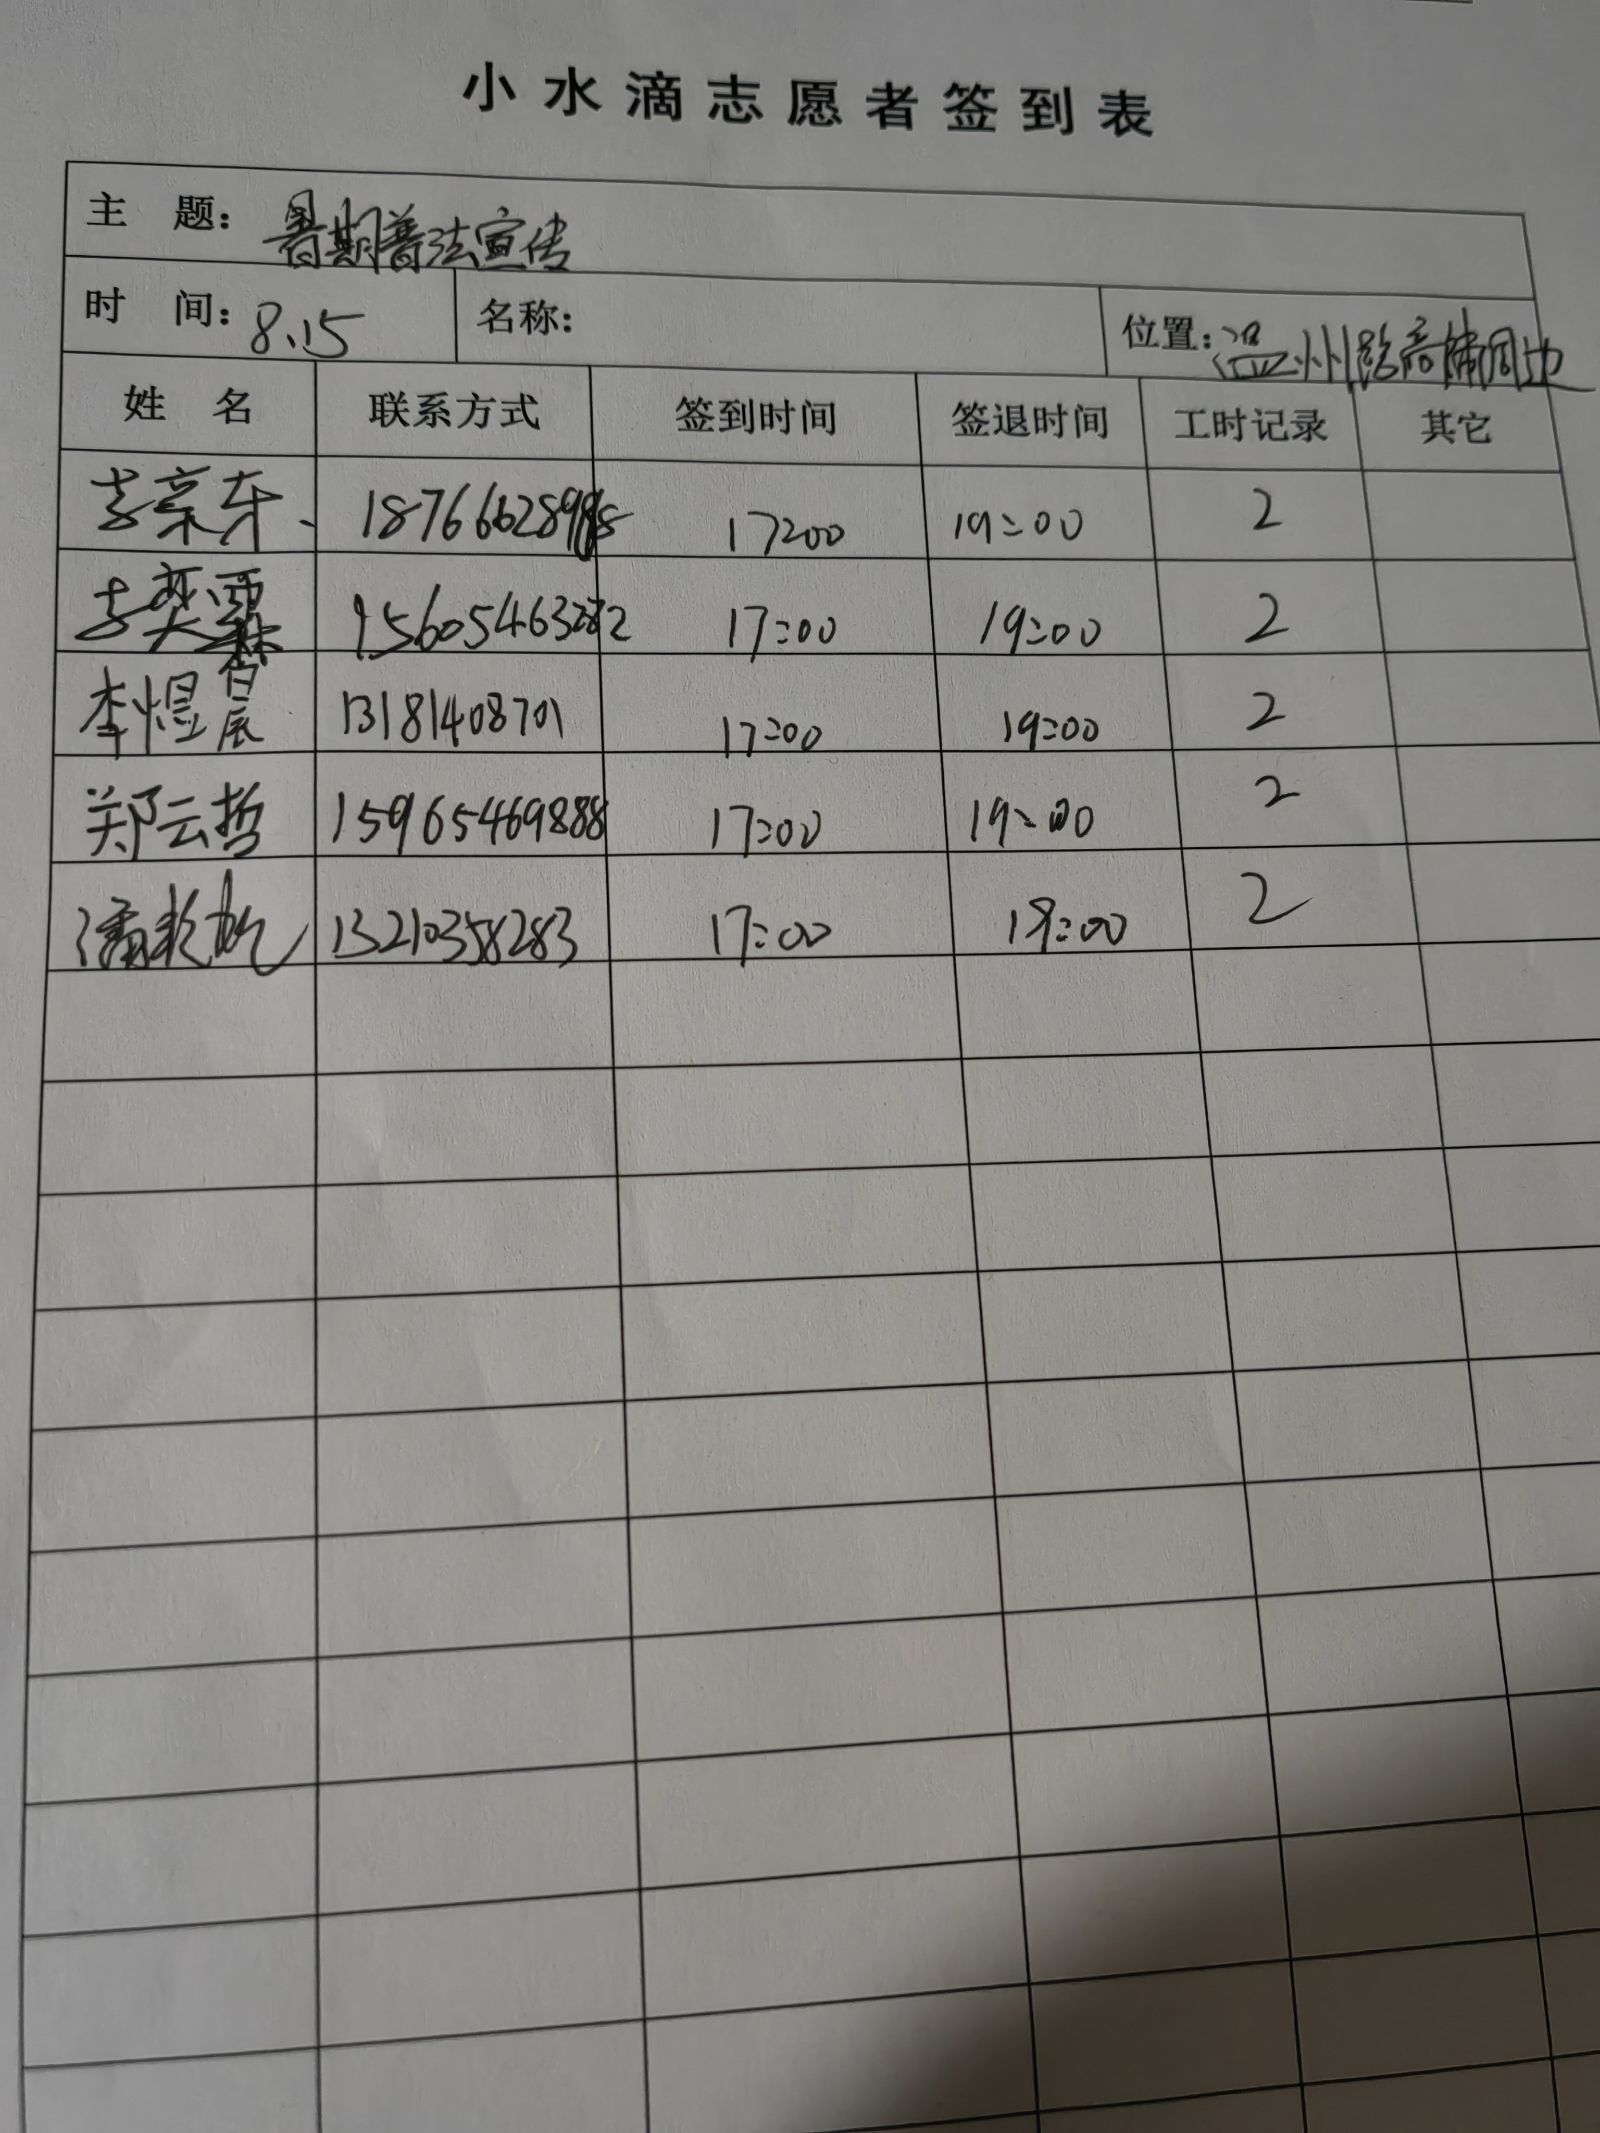 小水滴志愿者签到表
主 题: 暑期普法宣传
时 间: 8.15 名称: 位置: 温州路高铺周边
姓 名 联系方式 签到时间 签退时间 工时记录 其它
李京东 17:00 19:00 2
李奕霖 17:00 19:00 2
李煜宸 13181408701 17:00 19:00 2
郑云哲 15965469888 17:00 19:00 2
潘 13210358283 17:00 19:00 2